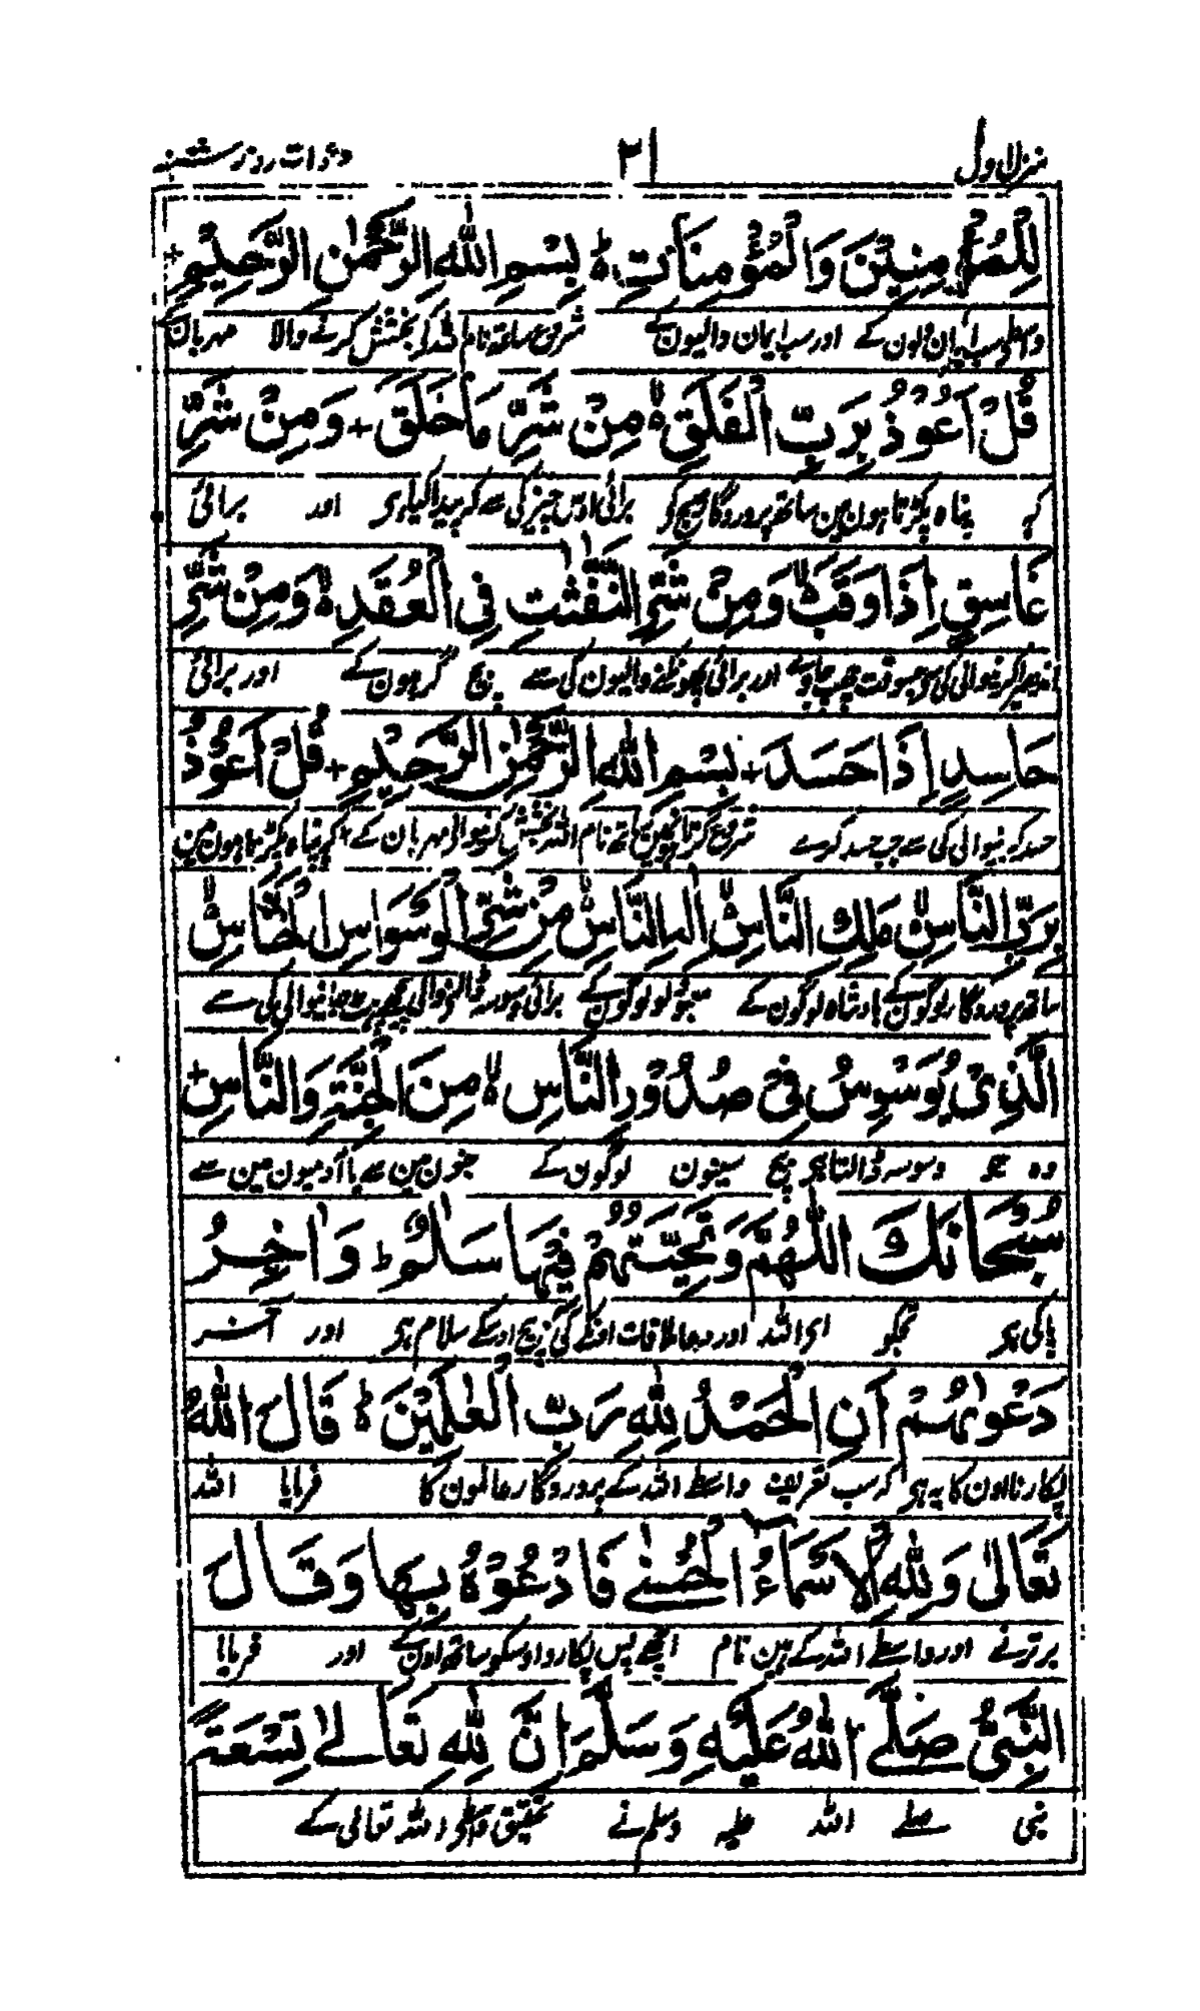 منزل اول ٣١ دلائل روز شنبه
لِلْمُؤْمِنِيْنَ وَالْمُؤْمِنَاتِ ؕ بِسْمِ اللهِ الرَّحْمٰنِ الرَّحِيْمِ +
واسطے سب ایمان والون کے اور سب ایمان والیون کے شروع ساتھ نام خدا کے بخشش کرنے والا مہربان
قُلْ اَعُوْذُ بِرَبِّ الْفَلَقِ ۙ مِنْ شَرِّ مَا خَلَقَ + وَمِنْ شَرِّ
کہہ پناہ پکڑتا ہون مین ساتھ پروردگار صبح کو برائی اوس چیز کی سے کہ پیدا کیا ہی اور برائی
غَاسِقٍ اِذَا وَقَبَ ۙ وَمِنْ شَرِّ النَّفّٰثٰتِ فِى الْعُقَدِ ۙ وَمِنْ شَرِّ
اندھیرا کرنیوالی کی سے جسوقت چھپ جاوے اور برائی پھونکنے والیون کی سے بیچ گرہون کے اور برائی
حَاسِدٍ اِذَا حَسَدَ + بِسْمِ اللهِ الرَّحْمٰنِ الرَّحِيْمِ + قُلْ اَعُوْذُ
حسد کرنیوالی کی سے جب حسد کرے شروع کرتا ہون ساتھ نام اللہ بخشش کرنیوالے مہربان کے کہہ پناہ پکڑتا ہون مین
بِرَبِّ النَّاسِ ۙ مَلِكِ النَّاسِ ۙ اِلٰهِ النَّاسِ ۙ مِنْ شَرِّ الْوَسْوَاسِ الْخَنَّاسِ ۙ
ساتھ پروردگار لوگون کے بادشاہ لوگون کے معبود لوگون کے برائی وسوسہ ڈالنے والی پیچھے ہٹ جانیوالی کی سے
الَّذِىْ يُوَسْوِسُ فِىْ صُدُوْرِ النَّاسِ ۙ مِنَ الْجِنَّةِ وَالنَّاسِ +
وہ جو وسوسہ ڈالتا ہی بیچ سینون لوگون کے جنون مین سے یا آدمیون مین سے
سُبْحَانَكَ اللّٰهُمَّ وَتَحِيَّتُهُمْ فِيْهَا سَلٰمٌ ؕ وَاٰخِرُ
پاکی ہی تجکو ای اللہ اور دعا ملاقات اونکے کی بیچ اوسکے سلام ہی اور آخر
دَعْوٰىهُمْ اَنِ الْحَمْدُ لِلّٰهِ رَبِّ الْعٰلَمِيْنَ ؕ قَالَ اللهُ
پکارنا اون کا یہ ہی کہ سب تعریف واسطے اللہ کے پروردگار عالمون کا فرمایا اللہ
تَعَالٰى وَلِلّٰهِ الْاَسْمَآءُ الْحُسْنٰى فَادْعُوْهُ بِهَا وَقَالَ
برتر نے اور واسطے اللہ کے ہین نام اچھے پس پکارو اوسکو ساتھ اون کے اور فرمایا
النَّبِىُّ صَلَّى اللهُ عَلَيْهِ وَسَلَّمَ اِنَّ لِلّٰهِ تَعَالٰى تِسْعَةً
نبی صلے اللہ علیہ وسلم نے تحقیق واسطے اللہ تعالی کے